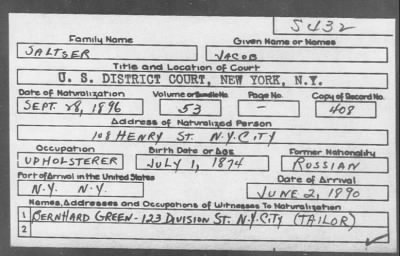 S432
Family Name Given Name or Names
SALTSER JACOB
Title and Location of Court
U. S. DISTRICT COURT, NEW YORK, N.Y.
Date of Naturalization Volume or Bundle No. Page No. Copy of Record No.
SEPT. 28, 1896 53 - 408
Address of Naturalized Person
108 HENRY ST. N.Y. CITY
Occupation Birth Date or Age Former Nationality
UPHOLSTERER JULY 1, 1874 RUSSIAN
Port of Arrival in the United States Date of Arrival
N.Y. N.Y. JUNE 2, 1890
Names, Addresses and Occupations of Witnesses To Naturalization
1 BERNHARD GREEN - 123 DIVISION ST. N.Y. CITY (TAILOR)
2